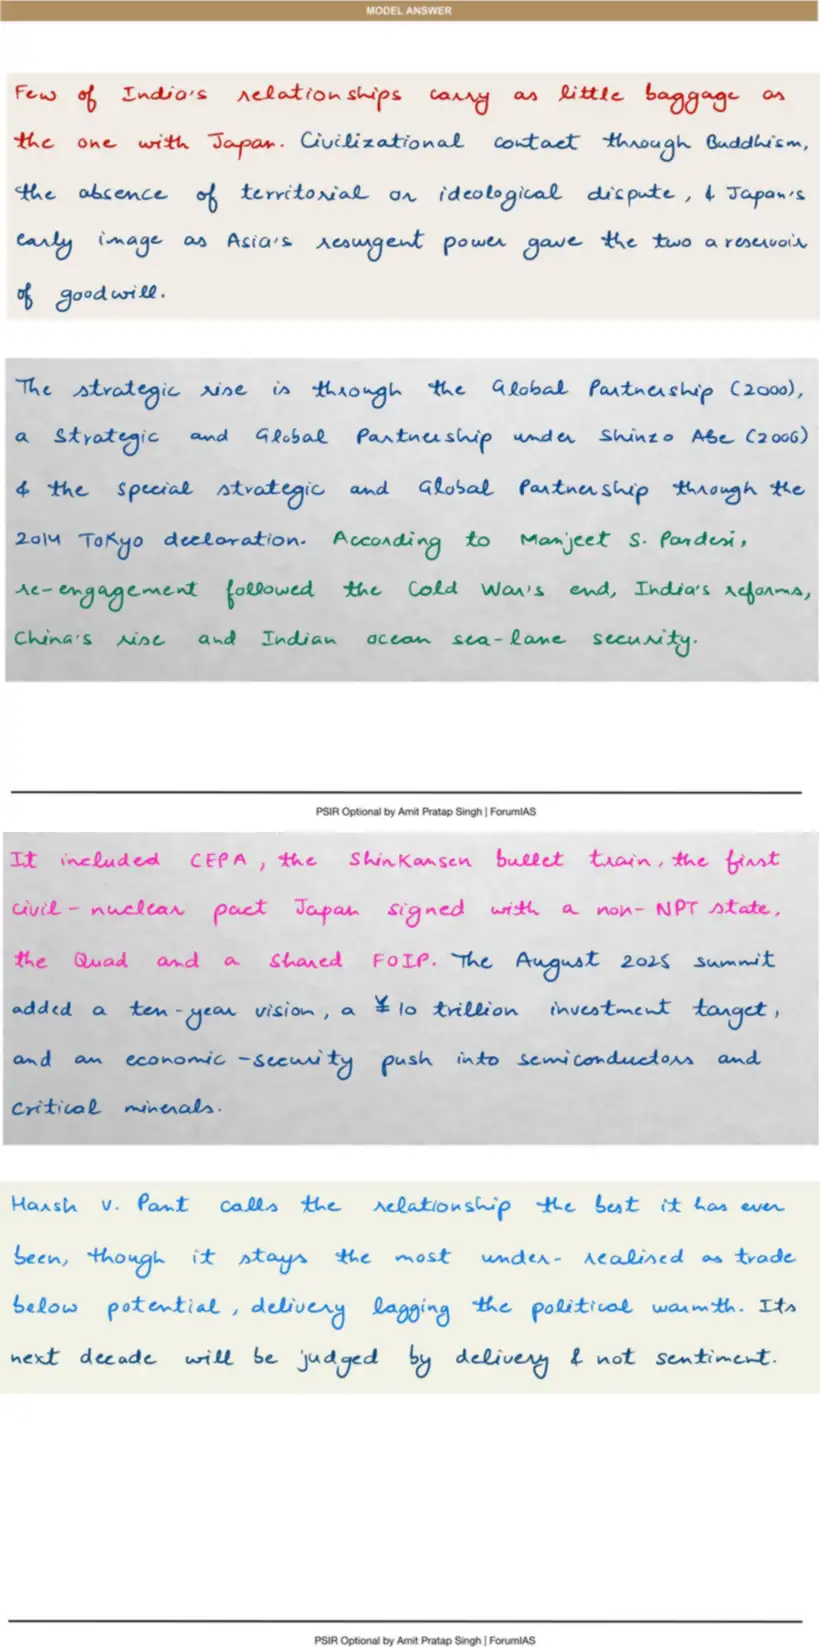 MODEL ANSWER
Few of India's relationships carry as little baggage as
the one with Japan. Civilizational contact through Buddhism,
the absence of territorial or ideological dispute, & Japan's
early image as Asia's resurgent power gave the two a reservoir
of goodwill.
The strategic rise is through the Global Partnership (2000),
a Strategic and Global Partnership under Shinzo Abe (2006)
& the special strategic and Global Partnership through the
2014 Tokyo declaration. According to Manjeet S. Pardesi,
re-engagement followed the Cold War's end, India's reforms,
China's rise and Indian ocean sea-lane security.
PSIR Optional by Amit Pratap Singh | ForumIAS
It included CEPA, the Shinkansen bullet train, the first
civil-nuclear pact Japan signed with a non-NPT state,
the Quad and a shared FOIP. The August 2025 summit
added a ten-year vision, a ¥10 trillion investment target,
and an economic-security push into semiconductors and
critical minerals.
Harsh V. Pant calls the relationship the best it has ever
been, though it stays the most under-realised as trade
below potential, delivery lagging the political warmth. Its
next decade will be judged by delivery & not sentiment.
PSIR Optional by Amit Pratap Singh | ForumIAS